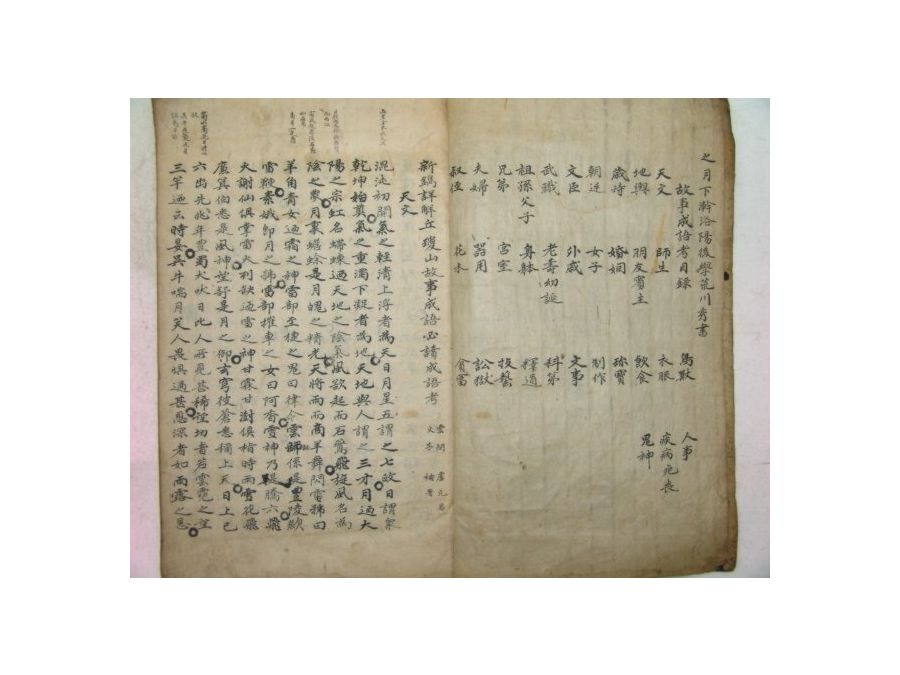 之月下澣洛陽後學荒川秀書
故事成語考目錄
鳥獸 人事
天文 師生 衣服 疾病死喪
地輿 朋友賓主 飲食 鬼神
歲時 婚姻 珍寶
朝廷 女子 制作
文臣 外戚 文事
武職 老壽幼誕 科第
祖孫父子 身體 釋道
兄弟 宮室 技藝
夫婦 器用 訟獄
叔侄 花木 貧富
新鐫詳解丘瓊山故事成語必讀成語考
雲間 盧元昌
文子 補著
天文
混沌初開氣之輕清上浮者為天日月星五謂之七政日謂衆
乾坤始奠氣之重濁下凝者為地天地與人謂之三才月迺太
陽之宗虹名螮蝀迺天地之陰氣風欲起而石鷰飛旋風名為
陰之象月裏蟾蜍是月魄之精光天將雨而商羊舞閃電號曰
羊角青女迺霜之神雷部至捷之鬼曰律令雲師係是豐隆欻
雷鞭素娥即月之號雷部推車之女曰阿香雪神乃是滕六飛
火謝仙俱掌雷火列缺迺電之神甘霖甘澍俱稱時雨雪花飛
廉箕伯悉是風神望舒是月之御玄穹彼蒼悉稱上天日上已
六出先兆年豐蜀犬吠日比人所見甚稀望切者若雲霓之望
三竿迺云時晏吳牛喘月笑人畏懼過甚恩深者如雨露之恩